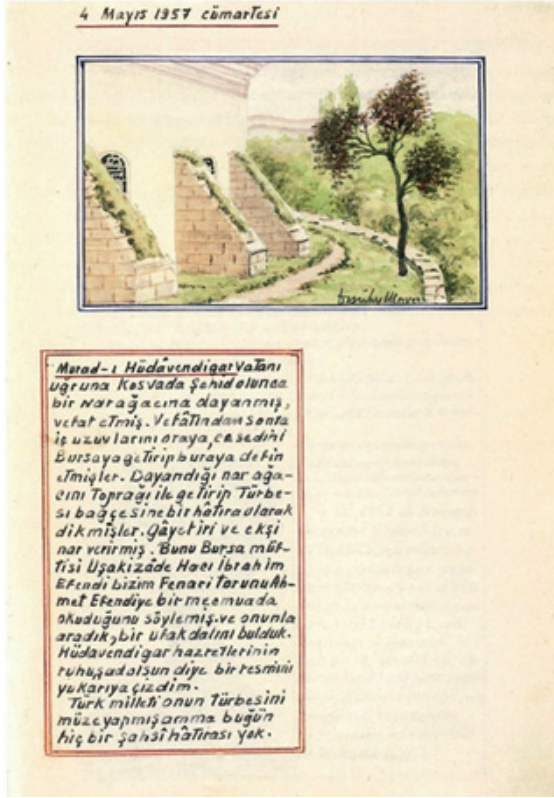 4 Mayıs 1957 cümartesi
Murad-ı Hüdâvendigar Vatanı
uğruna Kosvada Şehid olunca
bir Nar ağacına dayanmış,
vefat etmiş. Vefâtından sonra
iç uzuvlarını oraya, cesedini
Bursaya getirip buraya defin
etmişler. Dayandığı nar ağa-
cını Toprağı ile getirip Türbe-
si bağçesine bir hâtıra olarak
dikmişler. Gâyet iri ve ekşi
nar verirmiş. Bunu Bursa müf-
tisi Uşakızâde Hacı İbrahim
Efendi bizim Fenari torunu Ah-
met Efendiye bir mecmuada
okuduğunu söylemiş. ve onunla
aradık, bir ufak dalını bulduk.
Hüdâvendigar hazretlerinin
ruhu şad olsun diye bir resmini
yukarıya çizdim.
Türk milleti onun Türbesini
müze yapmış amma bugün
hiç bir şahsî hâtırası yok.